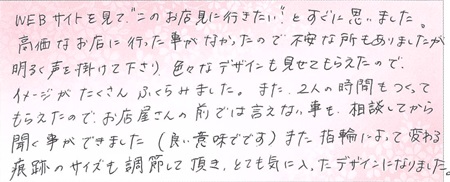 WEBサイトを見て"このお店見に行きたい！"とすぐに思いました。
高価なお店に行った事がなかったので不安な所もありましたが
明るく声を掛けて下さり、色々なデザインも見せてもらえたので、
イメージがたくさんふくらみました。また、2人の時間もつくって
もらえたので、お店屋さんの前では言えない事も、相談してから
聞く事ができました（良い意味でです）また指輪によって変わる
痕跡のサイズも調節して頂き、とても気に入ったデザインになりました。